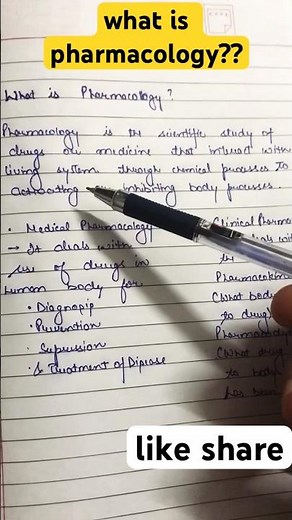 what is
pharmacology??
What is Pharmacology?
Pharmacology is the scientific study of
drugs or medicine that interact with
living system through chemical processes to
activating inhibiting body processes.
• Medical Pharmacology
→ It deals with
use of drugs in
human body for
• Diagnosis
• Prevention
• Supression
• & Treatment of Disease
Clinical Pharma
deals with
the
Pharmacokin
(what body
to drug
Pharmacody
(What drug
to body
has been
like share